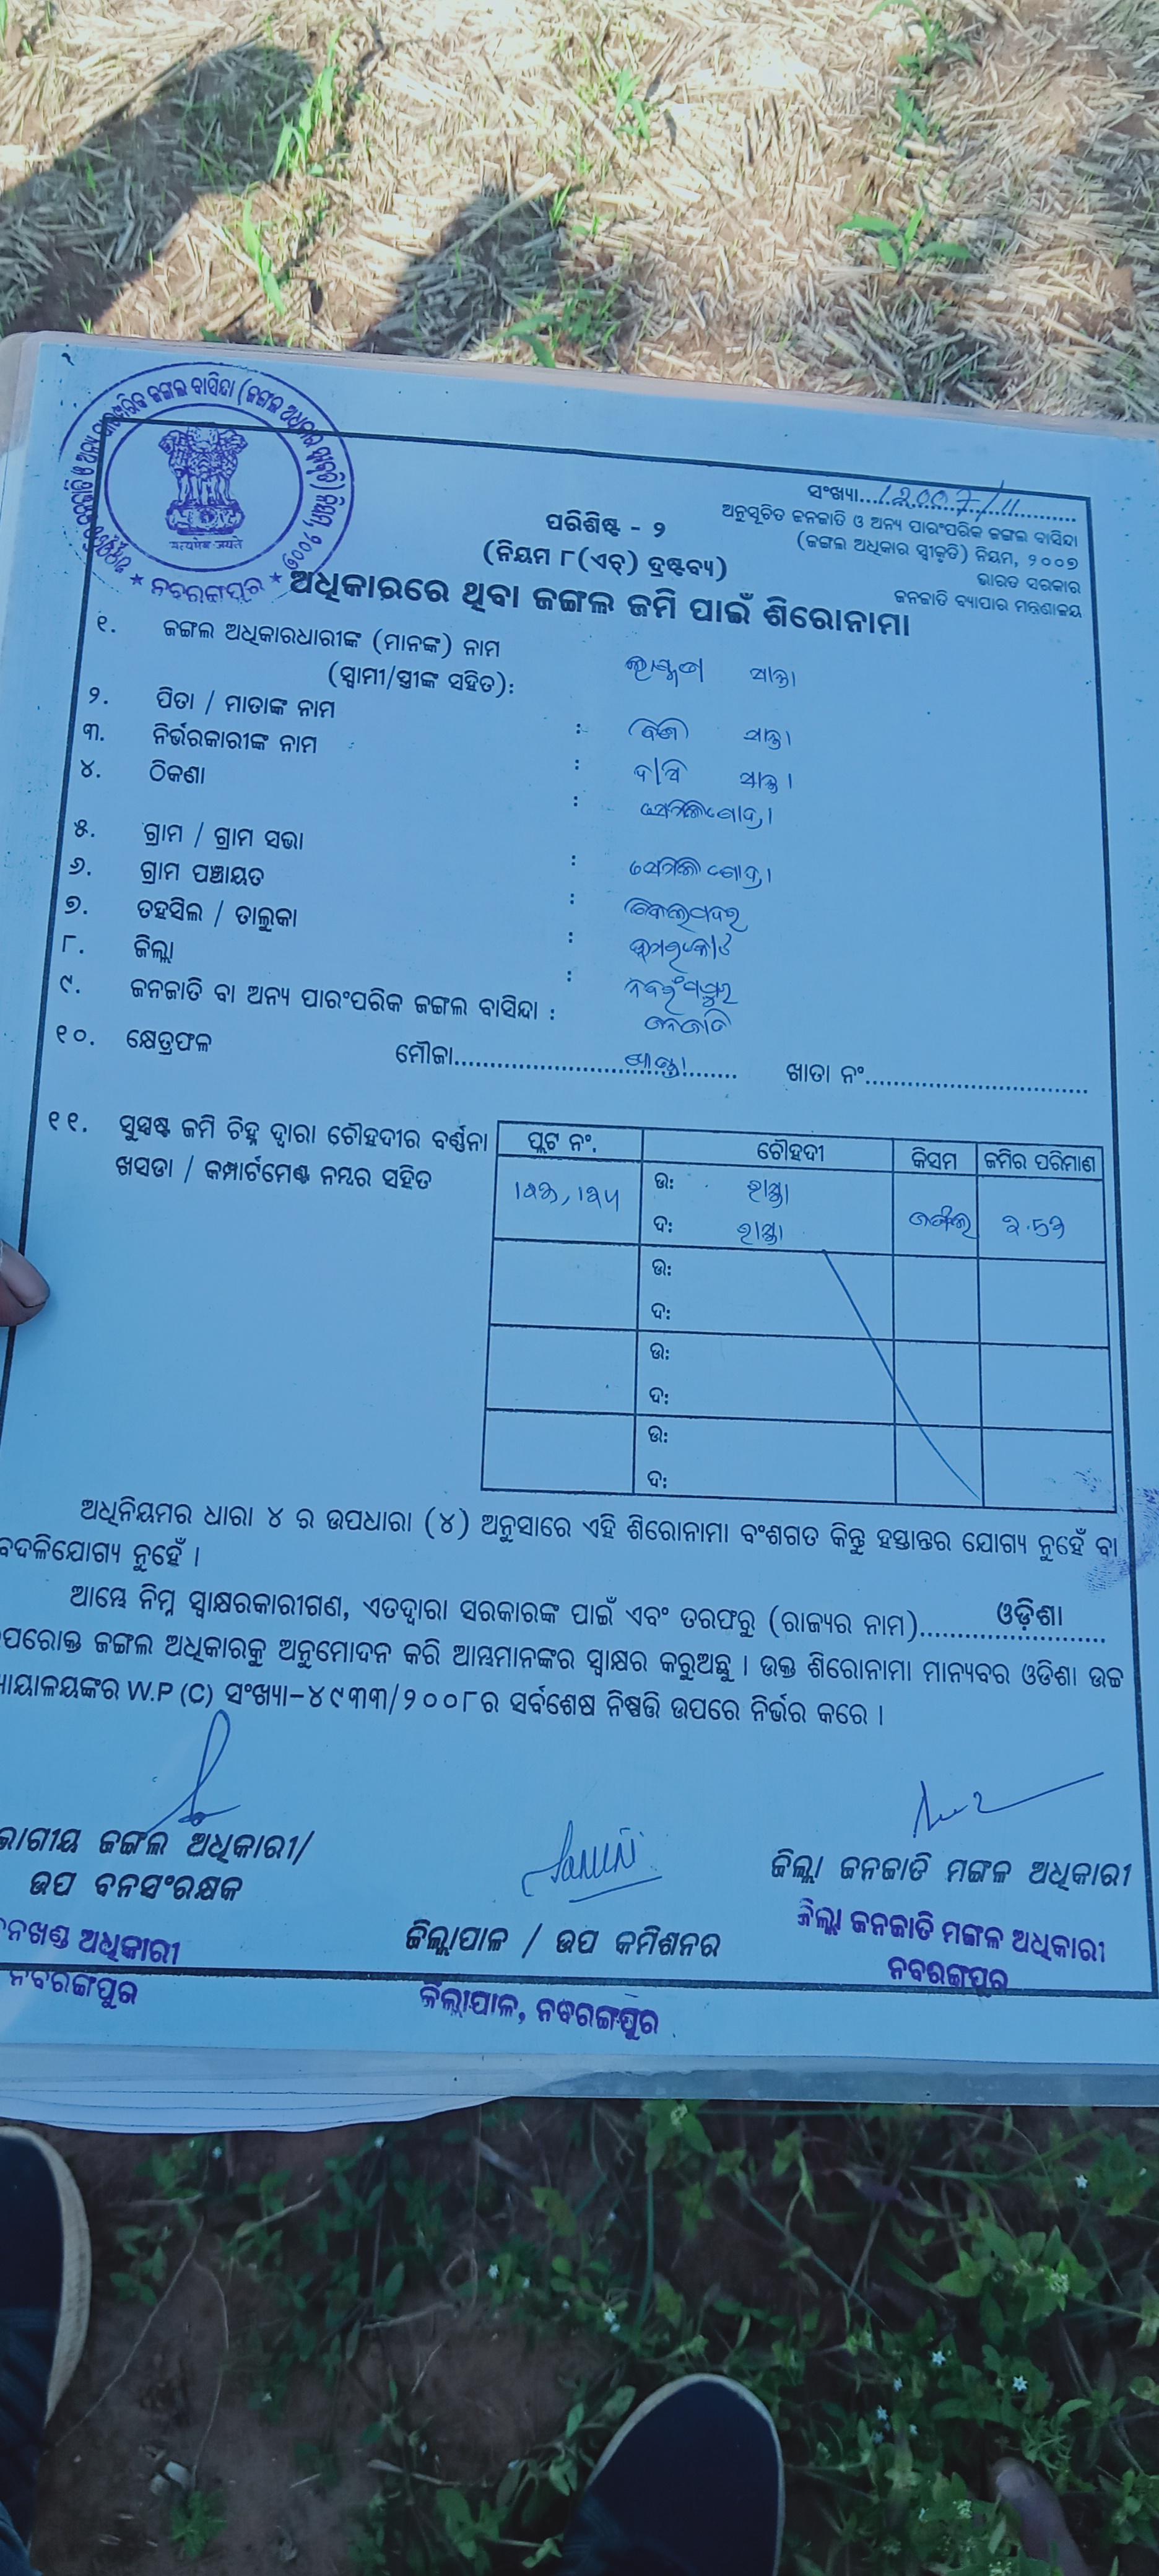 ସଂଖ୍ୟା...12007/11
ଅନୁସୂଚିତ ଜନଜାତି ଓ ଅନ୍ୟ ପାରଂପରିକ ଜଙ୍ଗଲ ବାସିନ୍ଦା
(ଜଙ୍ଗଲ ଅଧିକାର ସ୍ୱୀକୃତି) ନିୟମ, ୨୦୦୭
ଭାରତ ସରକାର
ଜନଜାତି ବ୍ୟାପାର ମନ୍ତ୍ରଣାଳୟ
सत्यमेव जयते
ନବରଙ୍ଗପୁର
ପରିଶିଷ୍ଟ - ୨
(ନିୟମ ୮(ଏଚ୍) ଦ୍ରଷ୍ଟବ୍ୟ)
ଅଧିକାରରେ ଥିବା ଜଙ୍ଗଲ ଜମି ପାଇଁ ଶିରୋନାମା
୧. ଜଙ୍ଗଲ ଅଧିକାରଧାରୀଙ୍କ (ମାନଙ୍କ) ନାମ
(ସ୍ୱାମୀ/ସ୍ତ୍ରୀଙ୍କ ସହିତ):
୨. ପିତା / ମାତାଙ୍କ ନାମ :
୩. ନିର୍ଭରକାରୀଙ୍କ ନାମ :
୪. ଠିକଣା :
୫. ଗ୍ରାମ / ଗ୍ରାମ ସଭା :
୬. ଗ୍ରାମ ପଞ୍ଚାୟତ :
୭. ତହସିଲ / ତାଲୁକା : ଉମରକୋଟ
୮. ଜିଲ୍ଲା : ନବରଂଗପୁର
୯. ଜନଜାତି ବା ଅନ୍ୟ ପାରଂପରିକ ଜଙ୍ଗଲ ବାସିନ୍ଦା : ଜନଜାତି
୧୦. କ୍ଷେତ୍ରଫଳ ମୌଜା............ ଖାତା ନଂ............
୧୧. ସୁସ୍ପଷ୍ଟ ଜମି ଚିହ୍ନ ଦ୍ୱାରା ଚୌହଦୀର ବର୍ଣ୍ଣନା
ଖସଡା / କମ୍ପାର୍ଟମେଣ୍ଟ ନମ୍ବର ସହିତ
ପ୍ଲଟ ନଂ. ଚୌହଦୀ କିସମ ଜମିର ପରିମାଣ
ଉ: ରାସ୍ତା
ଦ: ରାସ୍ତା ଜଙ୍ଗଲ
ଉ:
ଦ:
ଉ:
ଦ:
ଉ:
ଦ:
ଅଧିନିୟମର ଧାରା ୪ ର ଉପଧାରା (୪) ଅନୁସାରେ ଏହି ଶିରୋନାମା ବଂଶଗତ କିନ୍ତୁ ହସ୍ତାନ୍ତର ଯୋଗ୍ୟ ନୁହେଁ ବା
ବଦଳିଯୋଗ୍ୟ ନୁହେଁ ।
ଆମ୍ଭେ ନିମ୍ନ ସ୍ୱାକ୍ଷରକାରୀଗଣ, ଏତଦ୍ୱାରା ସରକାରଙ୍କ ପାଇଁ ଏବଂ ତରଫରୁ (ରାଜ୍ୟର ନାମ)....ଓଡ଼ିଶା....
ପରୋକ୍ତ ଜଙ୍ଗଲ ଅଧିକାରକୁ ଅନୁମୋଦନ କରି ଆମ୍ଭମାନଙ୍କର ସ୍ୱାକ୍ଷର କରୁଅଛୁ । ଉକ୍ତ ଶିରୋନାମା ମାନ୍ୟବର ଓଡିଶା ଉଚ୍ଚ
ୟାୟାଳୟଙ୍କର W.P (C) ସଂଖ୍ୟା-୪୯୩୩/୨୦୦୮ର ସର୍ବଶେଷ ନିଷ୍ପତ୍ତି ଉପରେ ନିର୍ଭର କରେ ।
ଭାଗୀୟ ଜଙ୍ଗଲ ଅଧିକାରୀ/
ଉପ ବନସଂରକ୍ଷକ
ନଖଣ୍ଡ ଅଧିକାରୀ
ନବରଙ୍ଗପୁର
ଜିଲ୍ଲାପାଳ / ଉପ କମିଶନର
ଜିଲ୍ଲାପାଳ, ନବରଙ୍ଗପୁର
ଜିଲ୍ଲା ଜନଜାତି ମଙ୍ଗଳ ଅଧିକାରୀ
ଜିଲ୍ଲା ଜନଜାତି ମଙ୍ଗଳ ଅଧିକାରୀ
ନବରଙ୍ଗପୁର